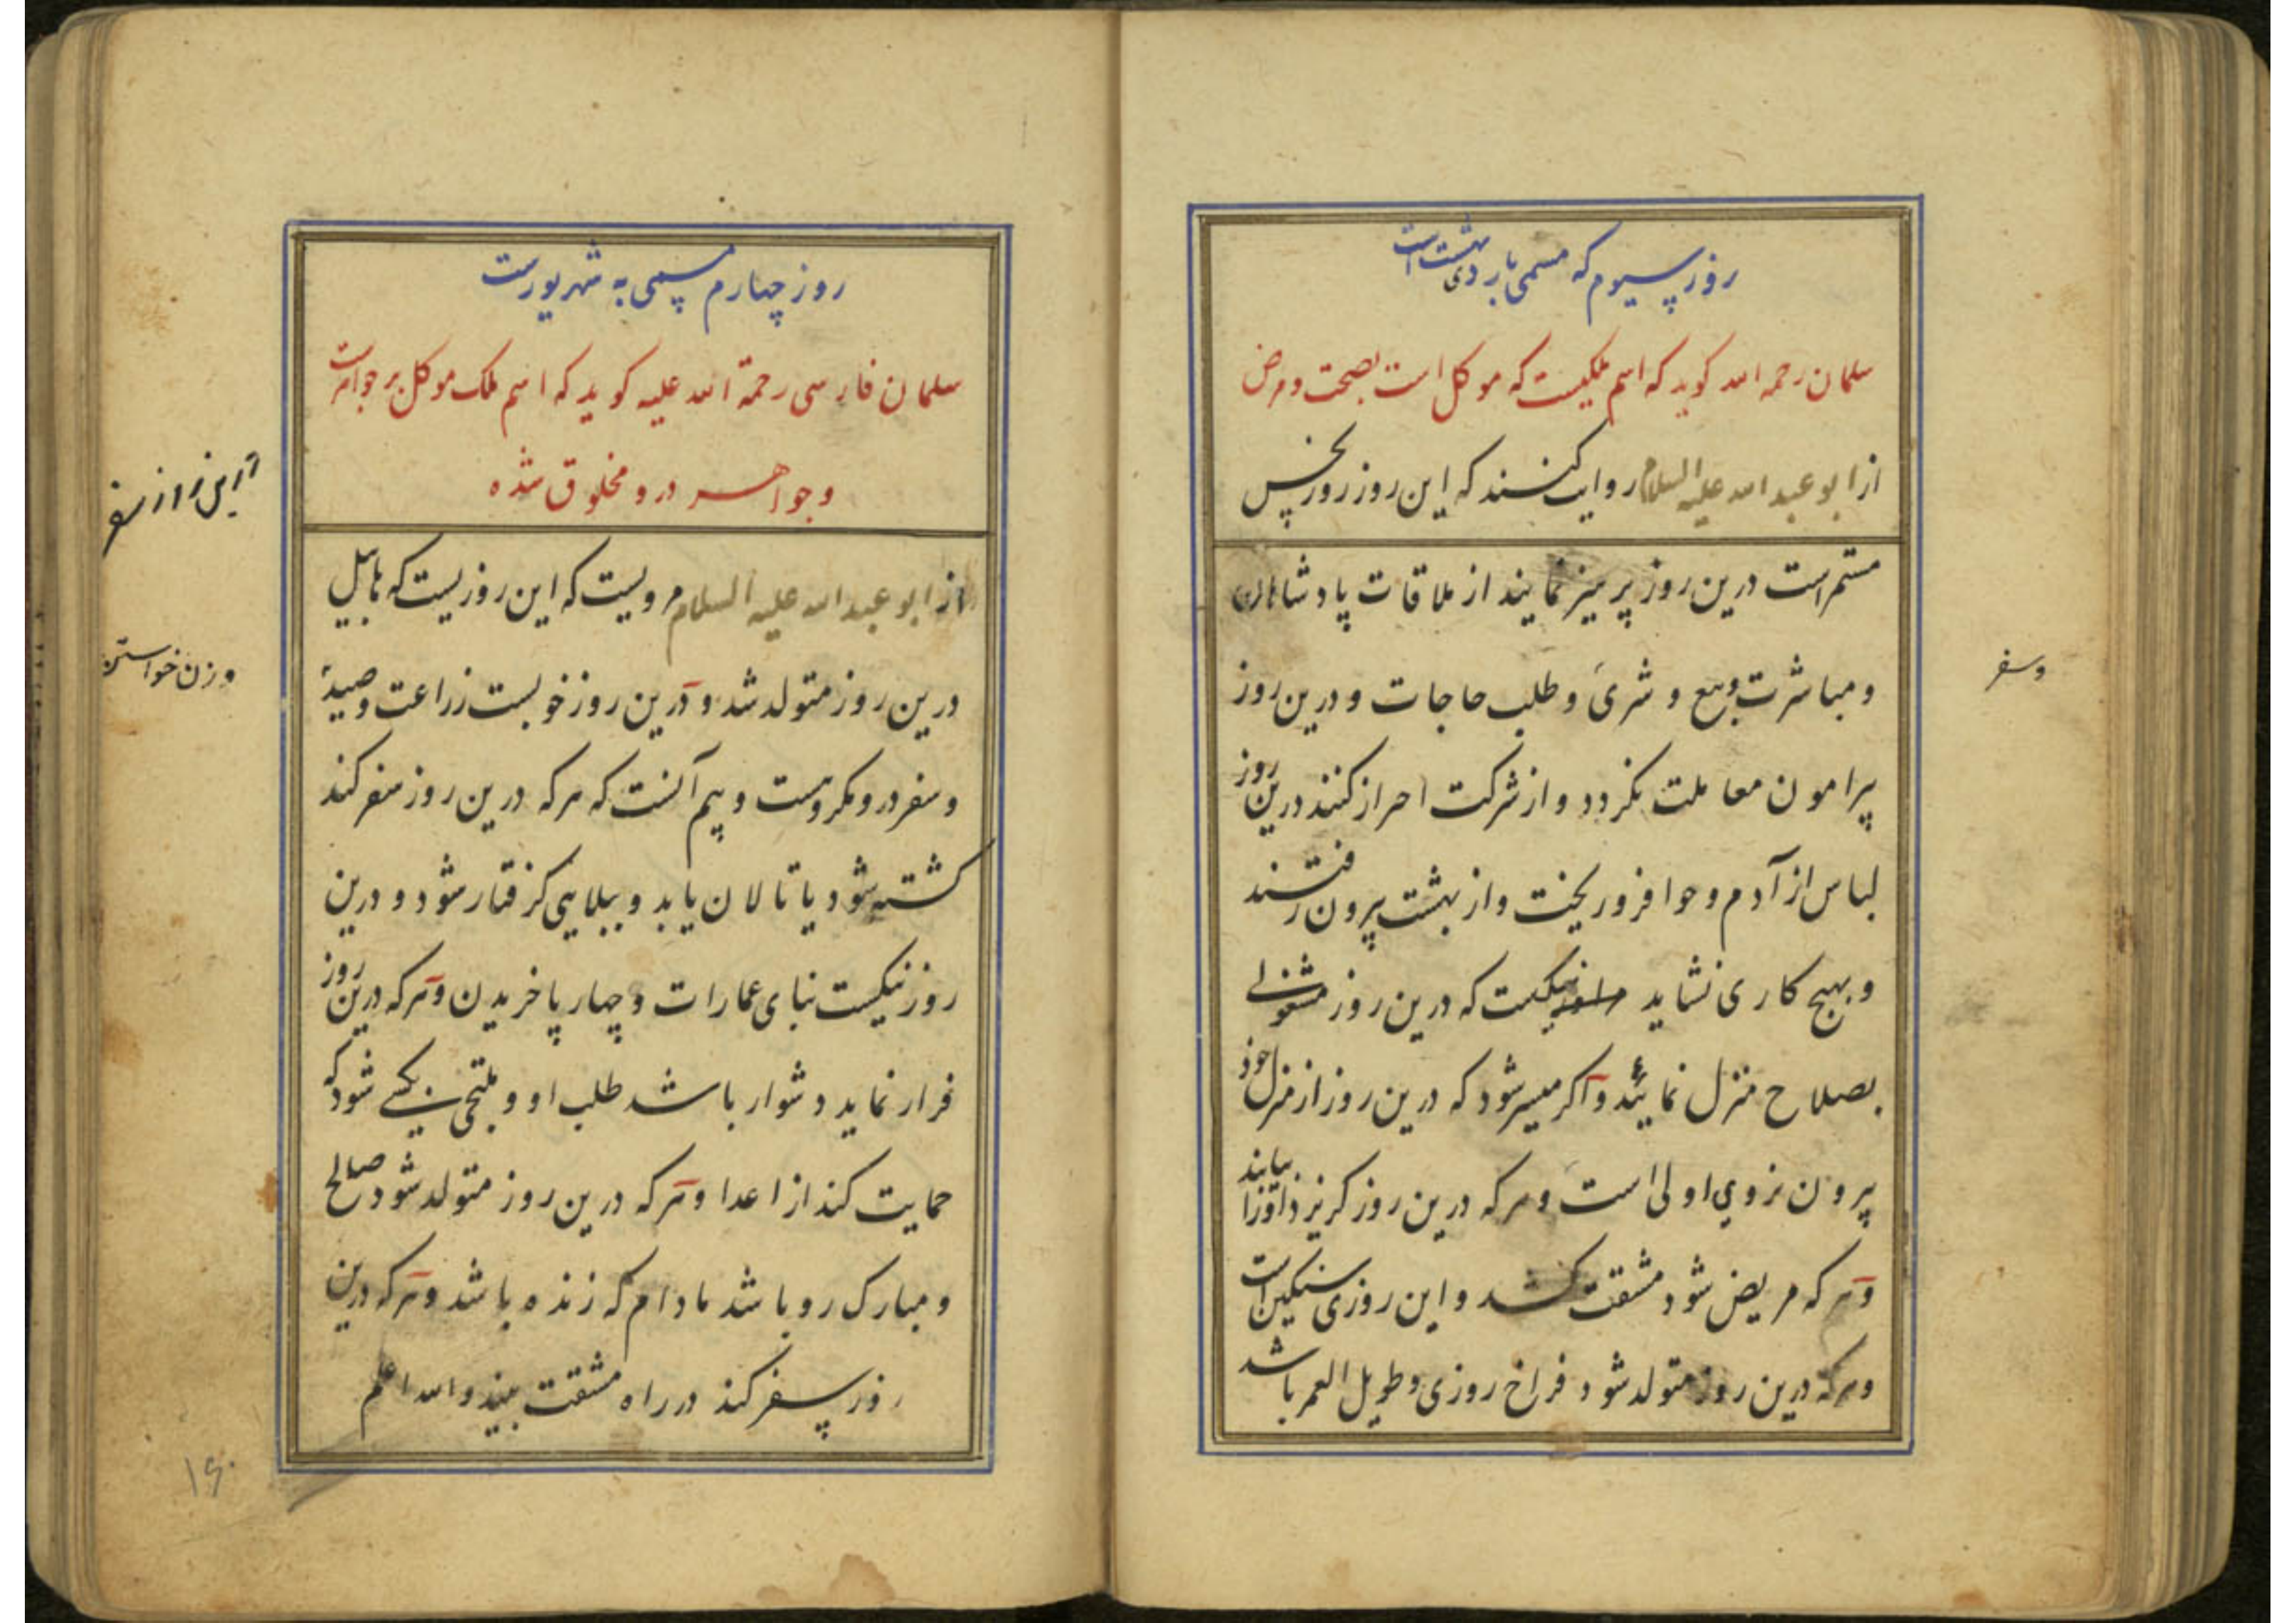 روز سیوم که مسمی باردی بهشت است
سلمان رحمه الله کوید که اسم ملکیست که موکل است بصحت و مرض
از ابو عبد الله علیه السلام روایت کنند که این روز روز نحس
مستمر است درین روز پرهیز نمایند از ملاقات پادشاهان
و مباشرت بیع و شری و طلب حاجات و درین روز
وسفر
پیرامون معاملت نکردد و از شرکت احراز کنند درین روز
لباس از آدم و حوا فرو ریخت و از بهشت بیرون رفتند
و بهیچ کاری نشاید نیکست که درین روز مشغولی
بصلاح منزل نمایند و اکر میسر شود که درین روز از منزل خود
بیرون نروی اولی است و هر که درین روز کریزد او را بیابند
و هر که مریض شود مشقت کشد و این روزی سنکین است
و هر که درین روز متولد شود فراخ روزی و طویل العمر باشد
روز چهارم مسمی به شهریورست
سلمان فارسی رحمة الله علیه کوید که اسم ملک موکل بر جواهرست
و جواهر درو مخلوق شده
از ابو عبد الله علیه السلام مرویست که این روزیست که هابیل
درین روز متولد شد و درین روز خوبست زراعت و صید
و زن خواستن
و سفر درو مکروهست و بیم آنست که هر که درین روز سفر کند
کشته شود یا تالان یابد و ببلایی کرفتار شود و درین
روز نیکست بنای عمارات و چهار پا خریدن و هر که درین روز
فرار نماید دشوار باشد طلب او و ملتجی بکسی شود که
حمایت کند از اعدا و هر که درین روز متولد شود صالح
و مبارک رو باشد مادام که زنده باشد و هر که درین
روز سفر کند در راه مشقت بیند و الله اعلم
۱۶۰